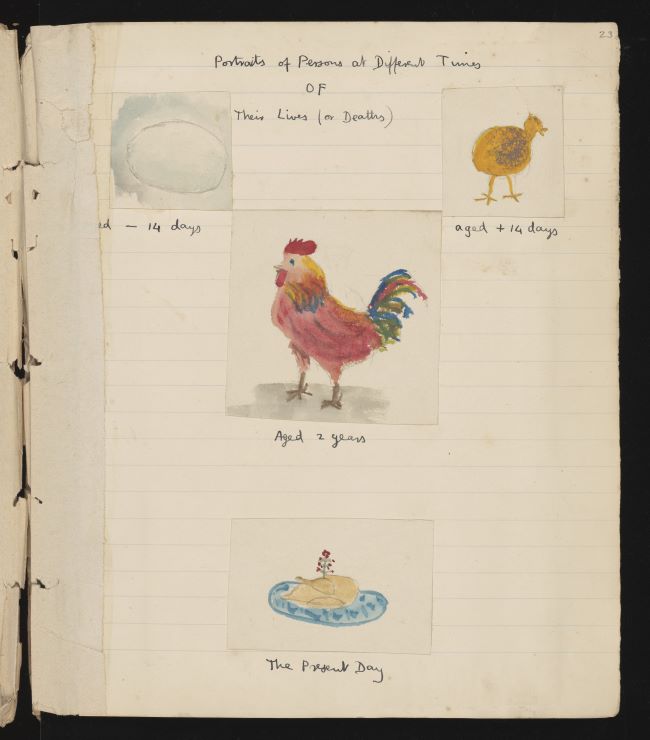 23
Portraits of Persons at Different Times
OF
Their Lives (or Deaths)
ed – 14 days
aged + 14 days
Aged 2 years
The Present Day